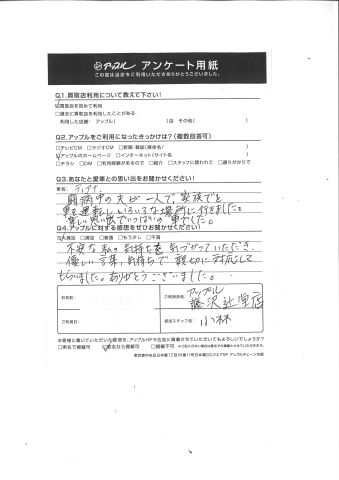 アップル アンケート用紙
この度は当店をご利用いただきありがとうございました。
Q1.買取店利用について教えて下さい!
☑買取店を初めて利用
□過去に買取店を利用したことがある
利用した店舗: アップル( )店 その他( )
Q2.アップルをご利用になったきっかけは?(複数回答可)
□テレビCM □ラジオCM □新聞・雑誌(媒体名: )
☑アップルのホームページ □インターネット(サイト名 )
□チラシ □DM □利用経験があるので □紹介 □スタッフに誘われて □通りがかりで
Q3.あなたと愛車との思い出をお聞かせください!
車名:
闘病中の夫が一人で、家族でと
運転し、いろいろな場所に行きました。
思い出でいっぱいの車でした。
Q4.アップルに対する感想をぜひお聞かせください!
☑大満足 □満足 □普通 □もう少し □不満
不安な私の気持ちを気づかっていただき、
優しい言葉、気持ちで親切に対応して
もらいました。ありがとうございました。
お名前:
ご利用店名: アップル
藤沢辻堂店
ご利用日:
担当スタッフ名: 小林
お客様に書いていただいた感想を、アップルHPや広告に掲載させていただいてもよろしいでしょうか?
□実名で掲載可 ☑匿名なら掲載可 □掲載不可